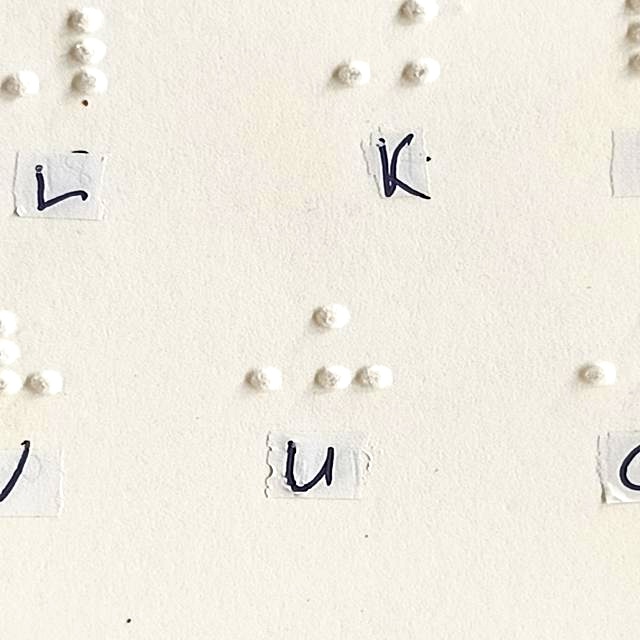 L K
U